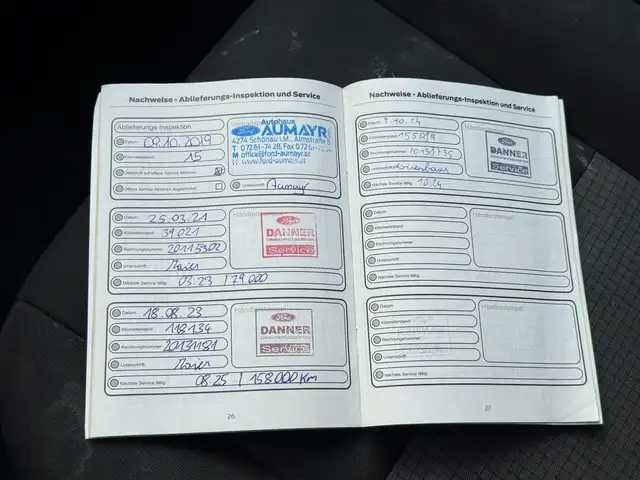 Nachweise - Ablieferungs-Inspektion und Service
Ablieferungs-Inspektion
Datum 09.10.2019
Kilometerstand 15
Offene Service Aktionen abgearbeitet
Unterschrift Aumayr
Autohaus
Ford AUMAYR
4274 Schönau i.M., Almstraße 8
T 07261-7428, Fax 07261-
M office@ford-aumayr.at
www.ford-aumayr.at
Datum 25.03.21
Kilometerstand 39021
Rechnungsnummer 20115302
Unterschrift Maier
Nächste Service fällig: 03.23 / 79000
Händlerstempel
Ford
DANNER
Service
Datum 18.08.23
Kilometerstand 118134
Rechnungsnummer 20131181
Unterschrift Maier
Nächste Service fällig: 08.25 / 158000 Km
Händlerstempel
Ford
DANNER
Service
26
Nachweise - Ablieferungs-Inspektion und Service
Datum 7.10.24
Kilometerstand
Rechnungsnummer
Unterschrift
Nächste Service fällig: 10.24
Ford
DANNER
Service
Datum
Kilometerstand
Rechnungsnummer
Unterschrift
Nächste Service fällig:
Händlerstempel
Datum
Kilometerstand
Rechnungsnummer
Unterschrift
Nächste Service fällig:
Händlerstempel
27